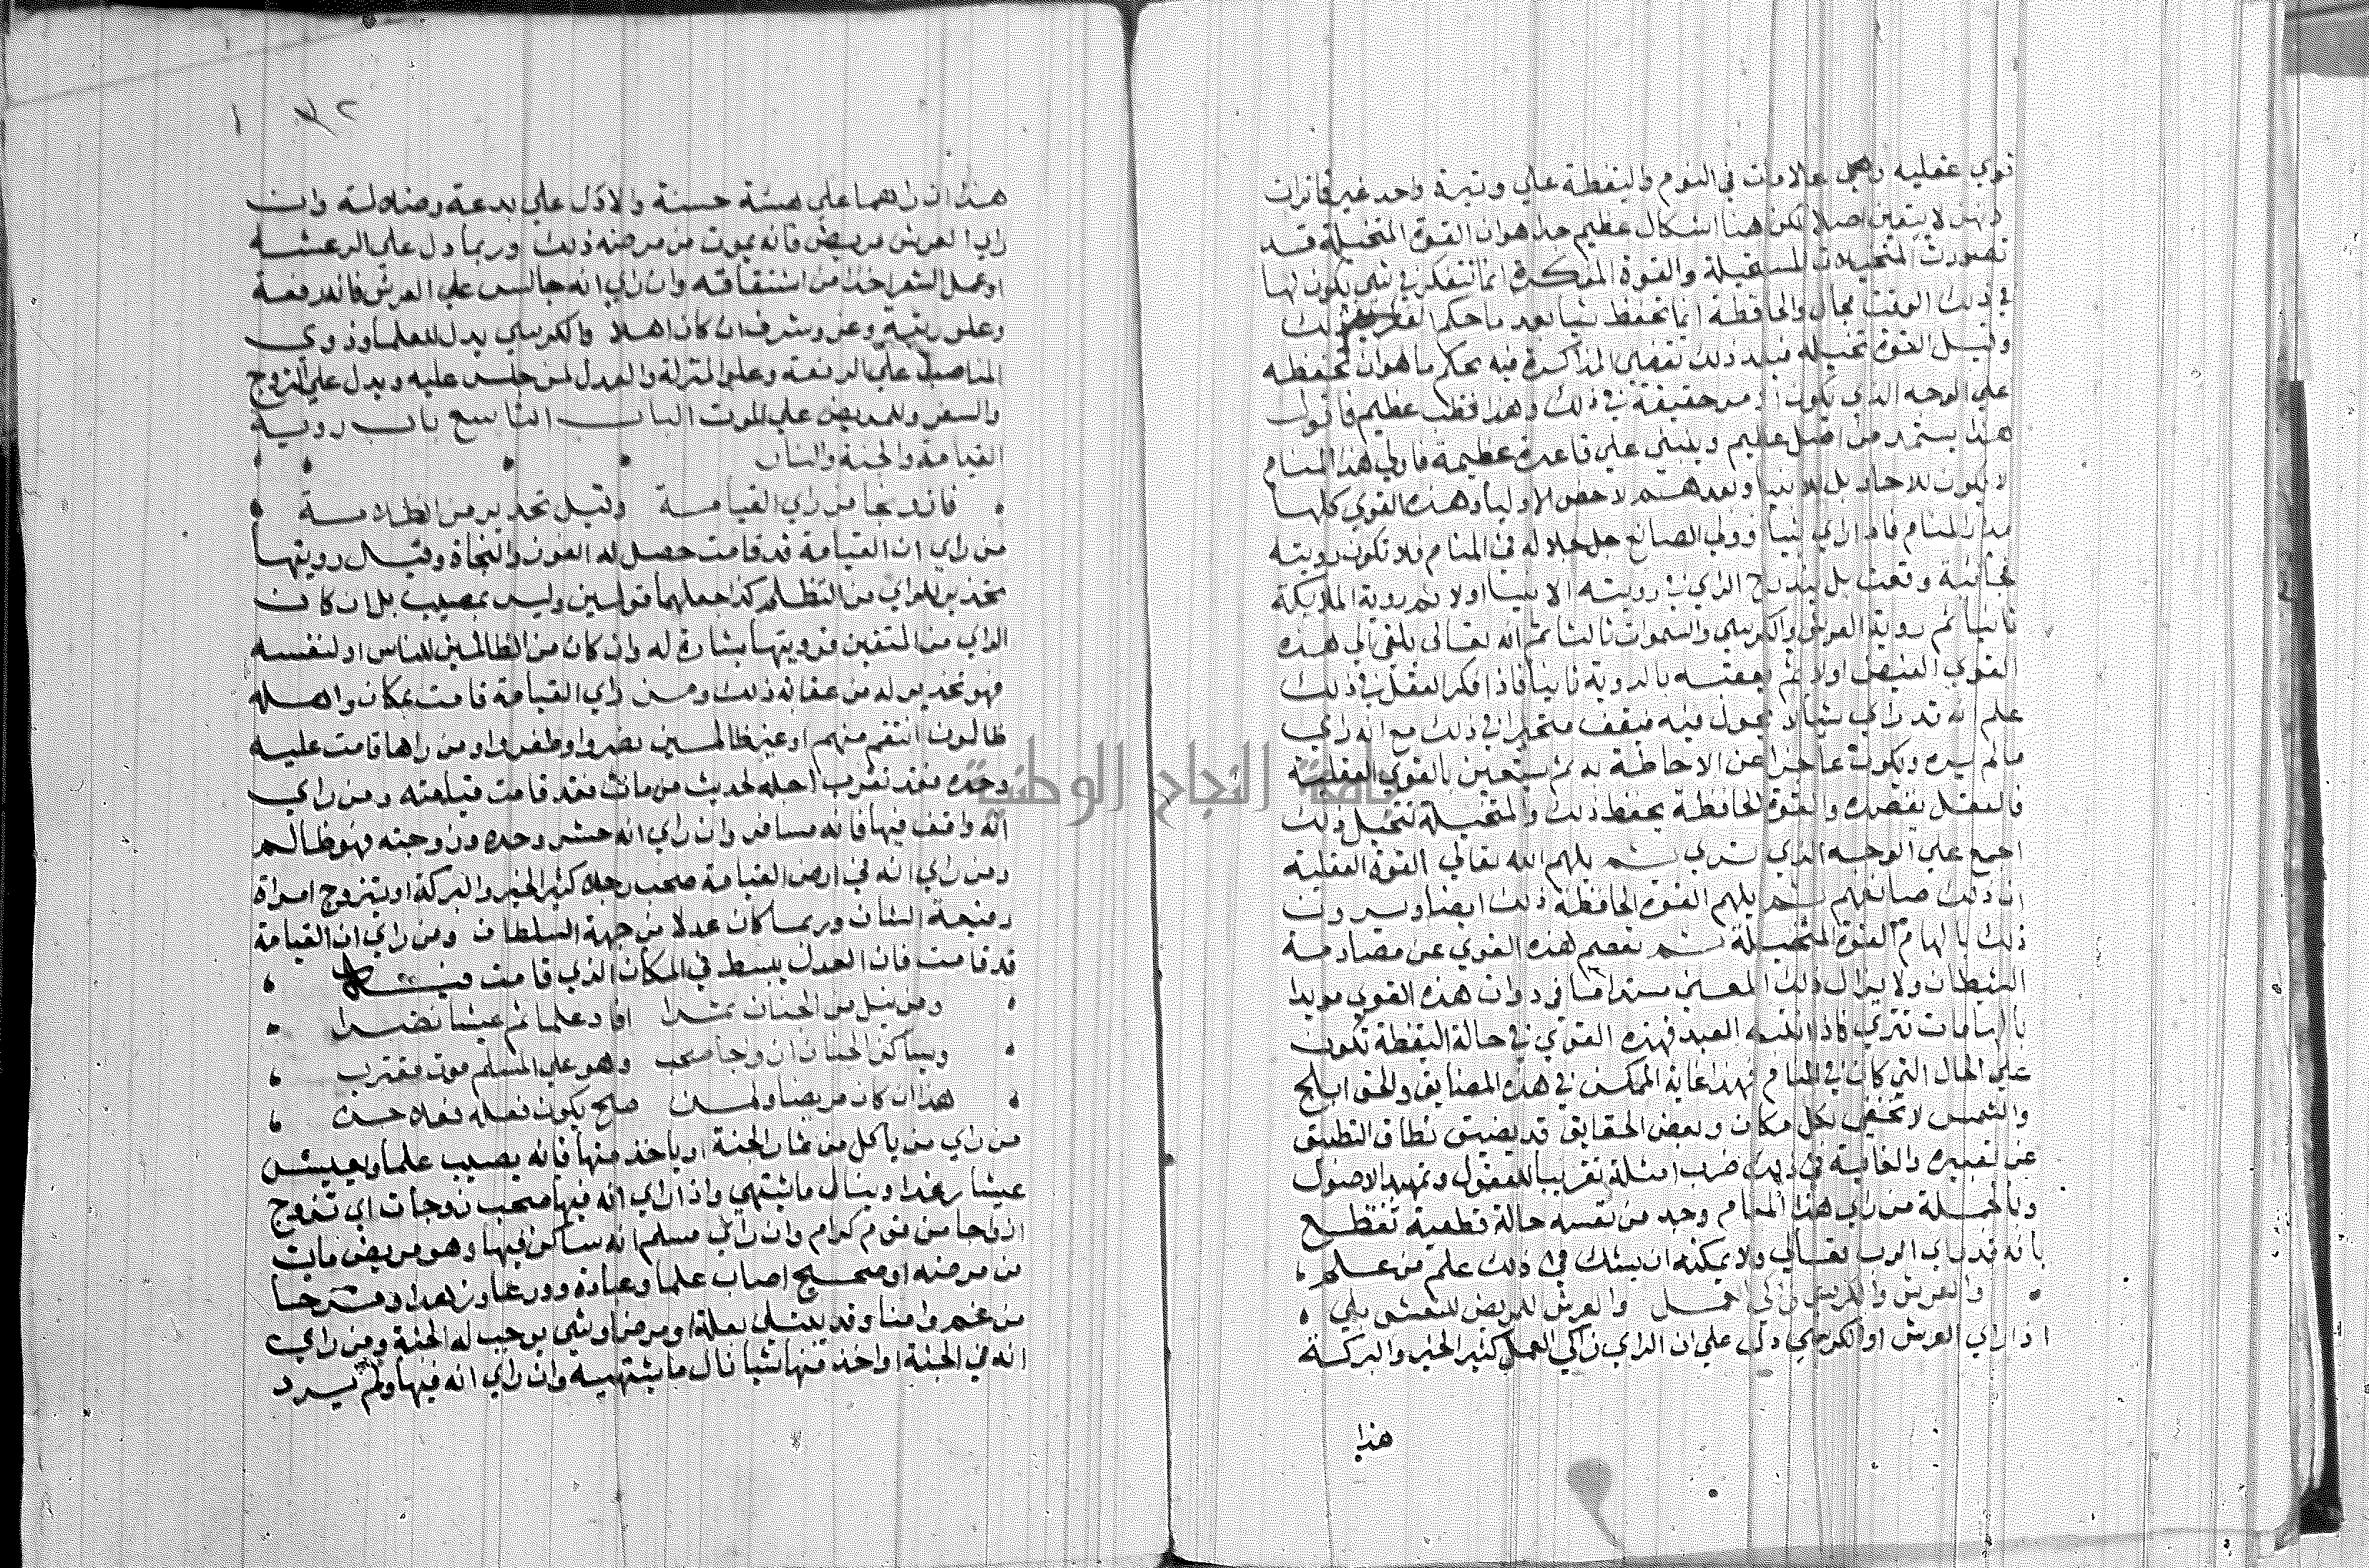 قوي عقليه وهي علامات في النوم واليقظة علي وتيرة واحد غير فاترات
لكن هنا اشكال عظيم جدا هو ان القوة المتخيلة قد
تصورت المتخيلات المستقبلة والقوة المفكرة انما تتفكر في شي يكون لها
في ذلك الوقت مجال والحافظة انما تحفظ شيا بعد ما حكم
وقبل القوة تخيله فبعد ذلك تقضي المذاكرة فيه بحكم ما هو ان تحفظه
علي الوجه الذي يكون حقيقة في ذلك وهذا خطب عظيم فاقول
هذا يستمد من اصل عظيم وينبني علي قاعدة عظيمة فاولي هذا المنام
لا يكون للاحاد بل للانبيا وبعدهم لاخص الاوليا وهذه القوي كلها
مدار المنام فاذا راي الصانع جل جلاله في المنام فلا تكون رويته
فجائية وقعت بل يندرج الراي في رويته الانبيا اولا ثم روية الملايكة
ثانيا ثم روية العرش والكرسي والسموات ثالثا ثم انه تعالى يلقي الي هذه
القوي الفيض اولا ثم يعقبه بالروية ثانيا فاذا فكر العقل في ذلك
علم انه قد راي شيا يجول فيه فيقف متحيرا في ذلك مع انه راي
مالم يره ويكون عاجزا عن الاحاطة به ثم يستعين بالقوي العقلية
فالعقل يقصده والقوة الحافظة يحفظ ذلك والمتخيلة تتخيل ذلك
اجمع علي الوجه الذي تري ثم يلهم الله تعالي القوة العقلية
ان ذلك صانعهم ثم يلهم القوة الحافظة ذلك ايضا ويرون
ذلك بالهام القوة المتخيلة ثم تعصم لهذه القوي عن مصادمة
الشيطان ولا يزال ذلك المعني مستداما في ذوات هذه القوي مويدا
بالهامات تتري فاذا انتبه العبد فهذه القوي في حالة اليقظة تكون
علي الحال التي كان في المنام فهذا غاية الممكن في هذه المضايق والحق ابلج
والشمس لا تخفي بكل مكان وبعض الحقايق قد يضيق نطاق النطق
عن تعبيره والغاية في ذلك ضرب امثلة تقريبا للعقول وتمهيد الاصول
وبالجملة من راي هذا المنام وجد من نفسه حالة قطعية تقطع
بانه قد راي الرب تعالي ولا يمكنه ان يشك في ذلك علم من علم
والعرش والكرسي زاكي العمل والعرش للمريض للنعش يلي
اذا راي العرش او الكرسي دل علي ان الراي زاكي العمل كثير الخير والبركة
هذا
٣٢ ١
هذا ان راهما علي هيئة حسنة والا دل علي بدعة وضلالة وان
راي العرش مريض فانه يموت من مرضه ذلك وربما دل علي الرعشة
او عمل الشعر اخذا من اشتقاقه وان راي انه جالس علي العرش فانه رفعة
وعلو رتبة وعز وشرف ان كان اهلا والكرسي يدل للعلما وذوي
المناصب علي الرفعة وعلو المنزلة والعدل لمن جلس عليه ويدل علي الزوج
والسفر وللمريض علي الموت الباب التاسع باب روية
القيامة والجنة والنار
فاز ونجا من راي القيامة وقيل تحذير من الظلامة
من راي ان القيامة قد قامت حصل له الفوز والنجاة وقيل رويتها
تحذير للراي من التظلم كذا جعلهما قولين وليس بمصيب بل ان كان
الراي من المتقين فرويتها بشارة له وان كان من الظالمين للناس او لنفسه
فهو تحذير له من عقابه ذلك ومن راي القيامة قامت بمكان واهله
ظالمون انتقم منهم او غير ظالمين نصروا وظفروا ومن راها قامت عليه
وحده فقد تقرب اجله لحديث من مات فقد قامت قيامته ومن راي
انه واقف فيها فانه مسافر وان راي انه حشر وحده وزوجته فهو ظالم
ومن راي انه في ارض القيامة صحب رجلا كثير الخير والبركة او يتزوج امراة
رفيعة الشان وربما كان عدلا من جهة السلطان ومن راي ان القيامة
قد قامت فان العدل يبسط في المكان الذي قامت فيه
ومن ينل من الجنان ثمرا افاد علما ثم عيشا نضرا
وساكن الجنان ازواجا صحب وهو علي المسلم موت مقترب
هذا ان كان مريضا ولمن صلح يكون فعله فعلا حسن
من راي من ياكل من ثمار الجنة او ياخذ منها فانه يصيب علما ويعيش
عيشا رغدا وينال ما يشتهي واذا راي انه فيها صحب زوجات اي تزوج
ازواجا من قوم كرام وان راي مسلم انه ساكن فيها وهو مريض مات
من مرضه او صحيح اصاب علما وعبادة وورعا وزهدا وفرحا
من غم وامنا وقد يبتلي بعلة او مرض او شي يوجب له الجنة ومن راي
انه في الجنة او اخذ منها شيا نال ما يشتهيه وان راي انه فيها ولم يرد